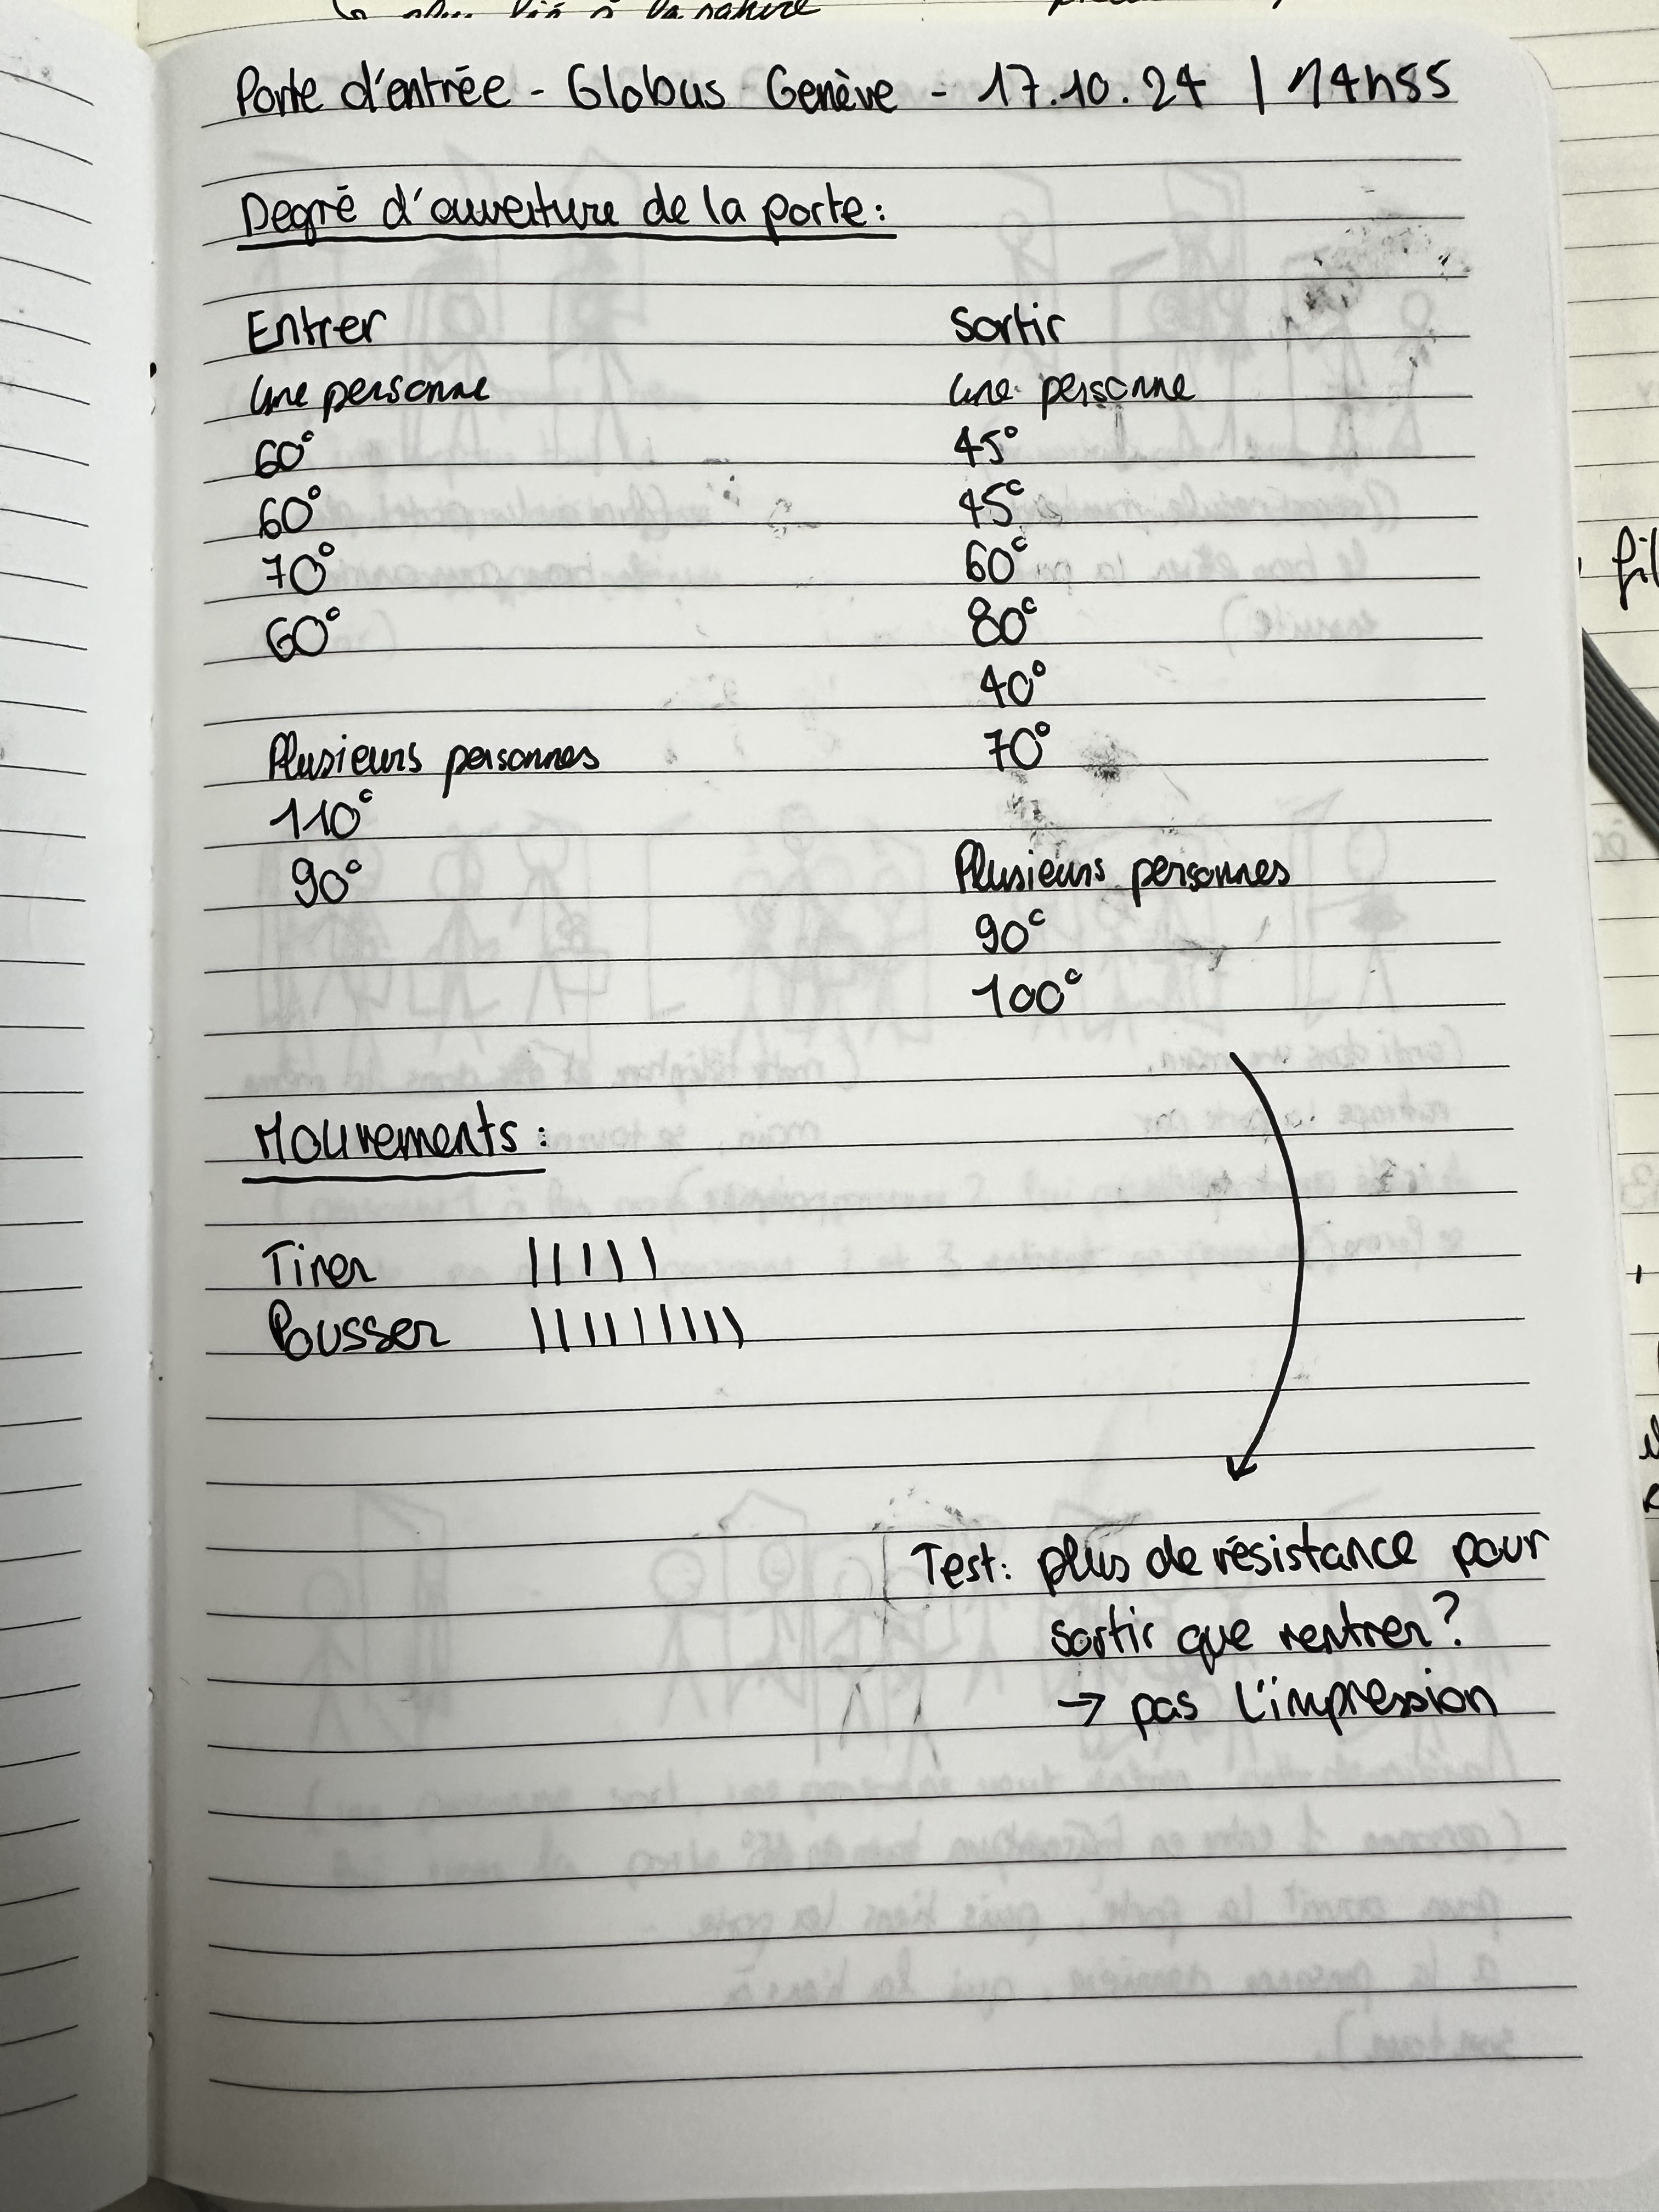 Porte d'entrée - Globus Genève - 17.10.24 | 14h55
Degré d'ouverture de la porte :
Entrer
Une personne
60°
60°
70°
60°
Plusieurs personnes
110°
90°
Sortir
Une personne
45°
45°
60°
80°
40°
70°
Plusieurs personnes
90°
100°
Mouvements :
Tirer |||||
Pousser |||||||||
Test : plus de résistance pour
sortir que rentrer ?
→ pas l'impression